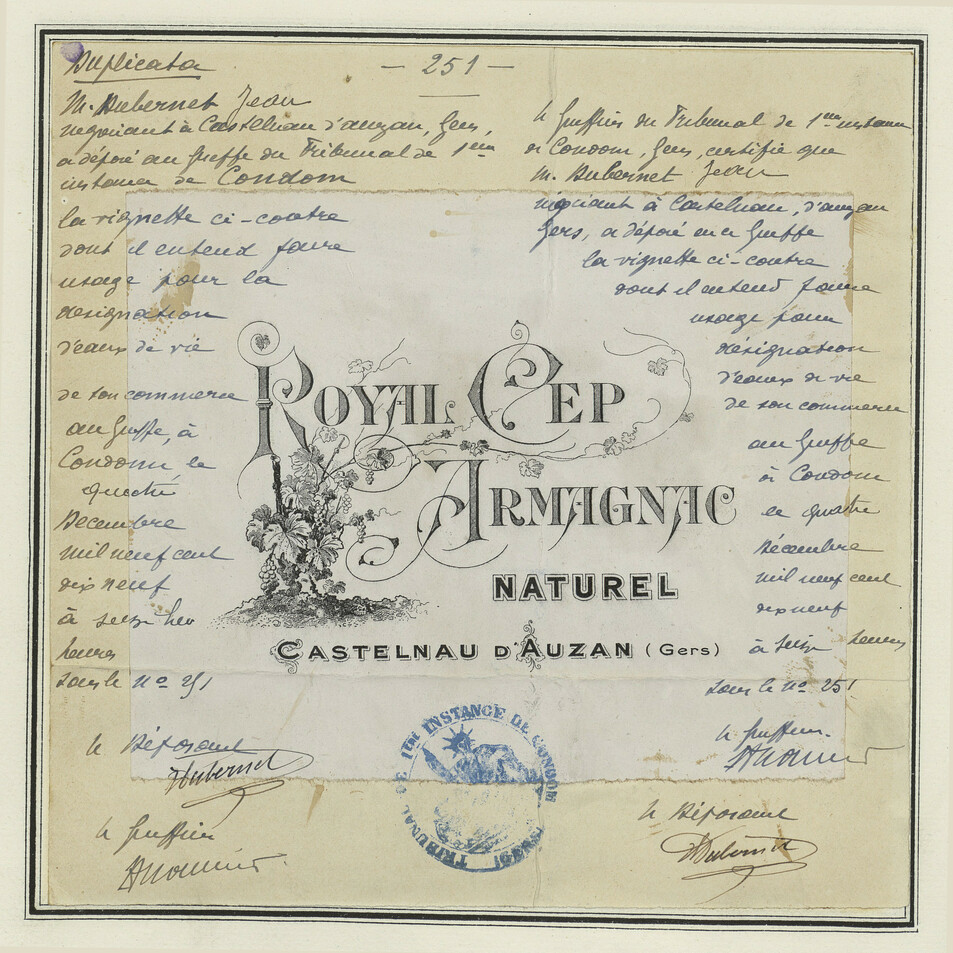 Duplicata
— 251 —
M. Dubernet Jean
négociant à Castelnau d'auzan, Gers,
a déposé au Greffe du Tribunal de 1ère
instance de Condom
la vignette ci-contre
dont il entend faire
usage pour la
désignation
d'eaux de vie
de son commerce
au Greffe, à
Condom le
quatre
Décembre
mil neuf cent
dix neuf
à seize heu
heures
sous le No 251
le Déposant
Dubernet
le Greffier
le Greffier du Tribunal de 1ère instance
de Condom, Gers, certifie que
M. Dubernet Jean
négociant à Castelnau, d'auzan
Gers, a déposé en ce Greffe
la vignette ci-contre
dont il entend faire
usage pour
désignation
d'eaux de vie
de son commerce
au Greffe
à Condom
ce quatre
Décembre
mil neuf cent
dix neuf
à seize heures
sous le no 251
le Greffier
le Déposant
Dubernet
ROYAL CEP
ARMAGNAC
NATUREL
CASTELNAU D'AUZAN (Gers)
TRIBUNAL DE 1ER INSTANCE DE CONDOM (GERS)